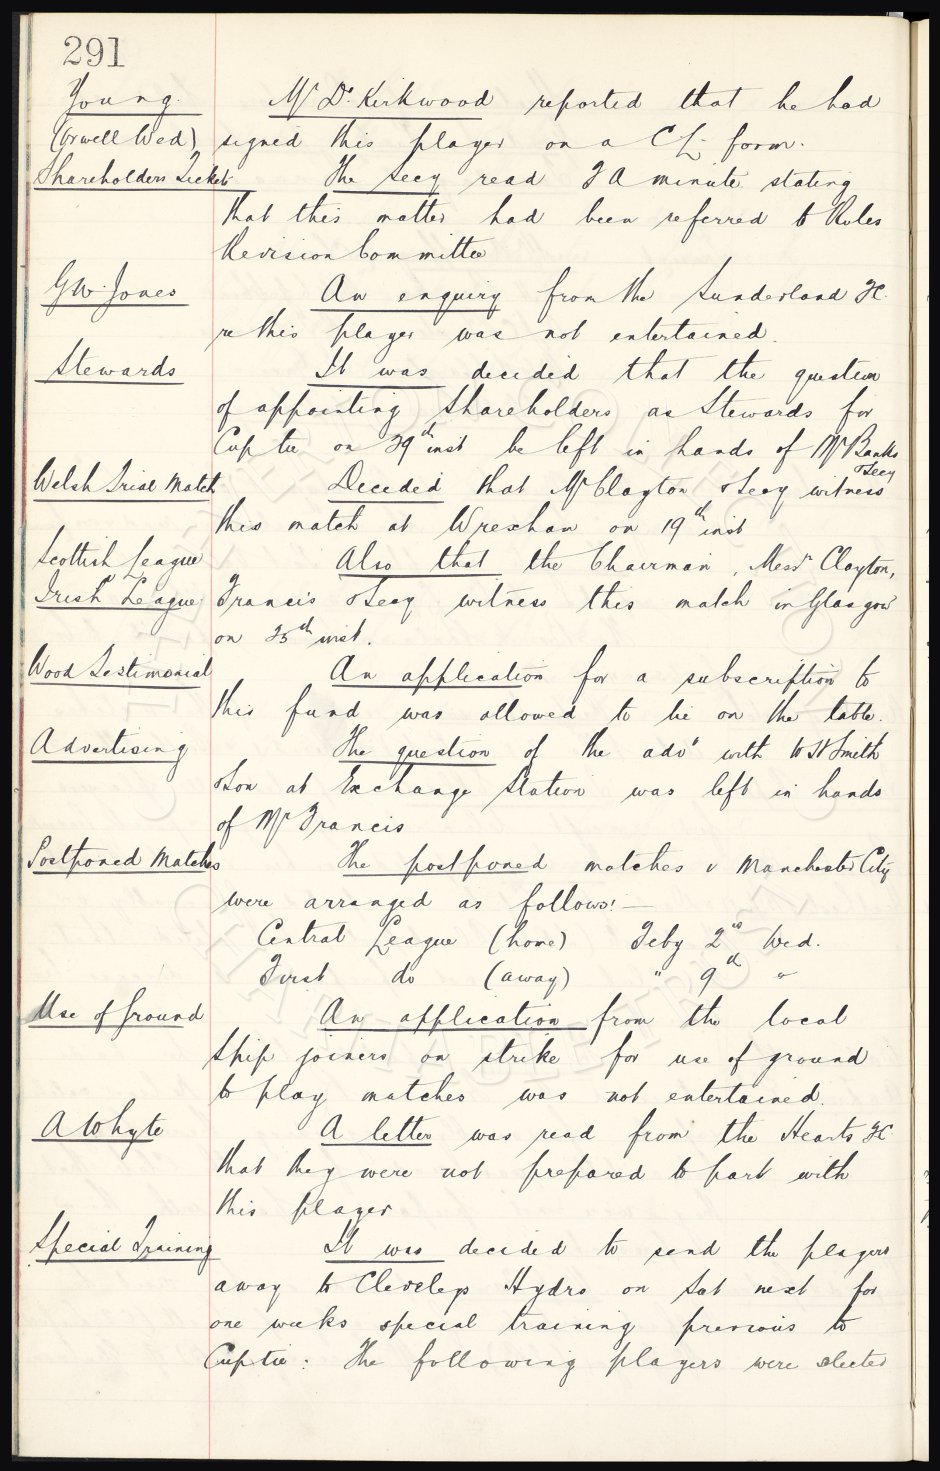 291
Young. Mr D. Kirkwood reported that he had
(Orwell Wed) signed this player on a C L form.
Shareholders Tickets The Secy read F A minute stating
that this matter had been referred to Rules
Revision Committee
G W Jones An enquiry from the Sunderland FC.
re this player was not entertained.
Stewards It was decided that the question
of appointing Shareholders as Stewards for
Cup tie on 29th inst be left in hands of Mr Banks
& Secy
Welsh Trial Match Decided that Mr Clayton & Secy witness
this match at Wrexham on 19th inst
Scottish League Also that the Chairman, Messrs Clayton,
Irish League Francis & Secy witness this match in Glasgow
on 25th inst.
Wood Testimonial An application for a subscription to
this fund was allowed to lie on the table.
Advertising The question of the advt with W H Smith
& Son at Exchange Station was left in hands
of Mr Francis
Postponed Matches The postponed matches v Manchester City
were arranged as follows:—
Central League (home) Feby 2nd Wed.
First do (away) " 9th "
Use of Ground An application from the local
Ship joiners on strike for use of ground
to play matches was not entertained.
A Whyte A letter was read from the Hearts FC
that they were not prepared to part with
this player
Special Training It was decided to send the players
away to Cleveleys Hydro on Sat next for
one weeks special training previous to
Cup tie: The following players were selected